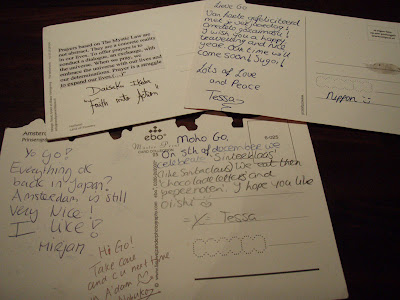 Prayers based on The Mystic Law are
not abstract. They are a concrete reality
in our lives. To offer prayers is to
conduct a dialogue, an exchange,
with the universe. When we pray, we
embrace the universe with our lives and
our determinations. Prayer is a struggle
to expand our lives.
Daisaku Ikeda
"Faith into Action"
Lieve Go
Van harte gefeliciteerd
met je
I wish you a happy
and nice
year. Our time will
come soon! Sugoi!
Lots of Love
and Peace
Tessa
Nippon
Amster
Yo Go!
Everything ok
back in Japan?
Amsterdam is still
Very Nice!
I like!
Mirjan
Hi Go!
Take care
and c u next time
in A'dam
ebo
Moko Go,
On 5th of december we
celebrate 'Sinterklaas'
(like Santaclaus) We eat then
chocolate letters and
pepernoten. I hope you like
Oishi
X Tessa